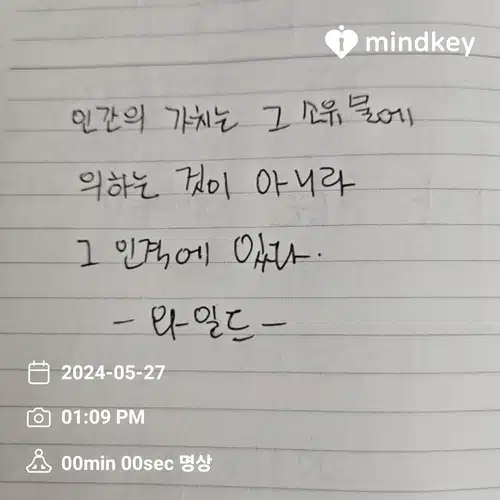 mindkey
인간의 가치는 그 소유물에
의하는 것이 아니라
그 인격에 있다.
- 와일드 -
2024-05-27
01:09 PM
00min 00sec 명상